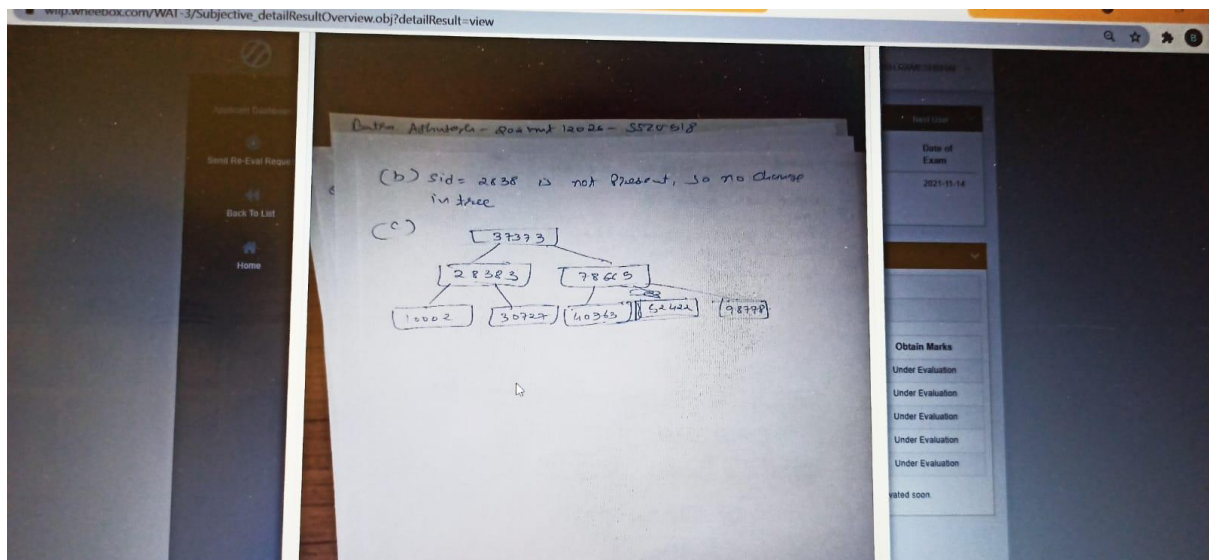 wilp.wheebox.com/WAT-3/Subjective_detailResultOverview.obj?detailResult=view
B
Applicant Dashboard
Send Re-Eval Reque
Back To List
Home
- 5520618
(b) Sid = 2838 is not Present, so no change
in tree
(c)
37373
28383 78669
10002 30727 40363 52422 98778
Next User
Date of
Exam
2021-11-14
Obtain Marks
Under Evaluation
Under Evaluation
Under Evaluation
Under Evaluation
Under Evaluation
vated soon.